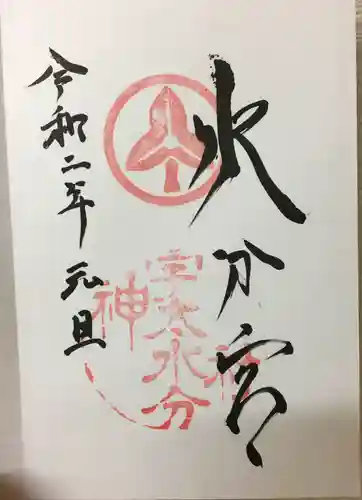 水分宮
宇太水分
神
令和二年 元旦